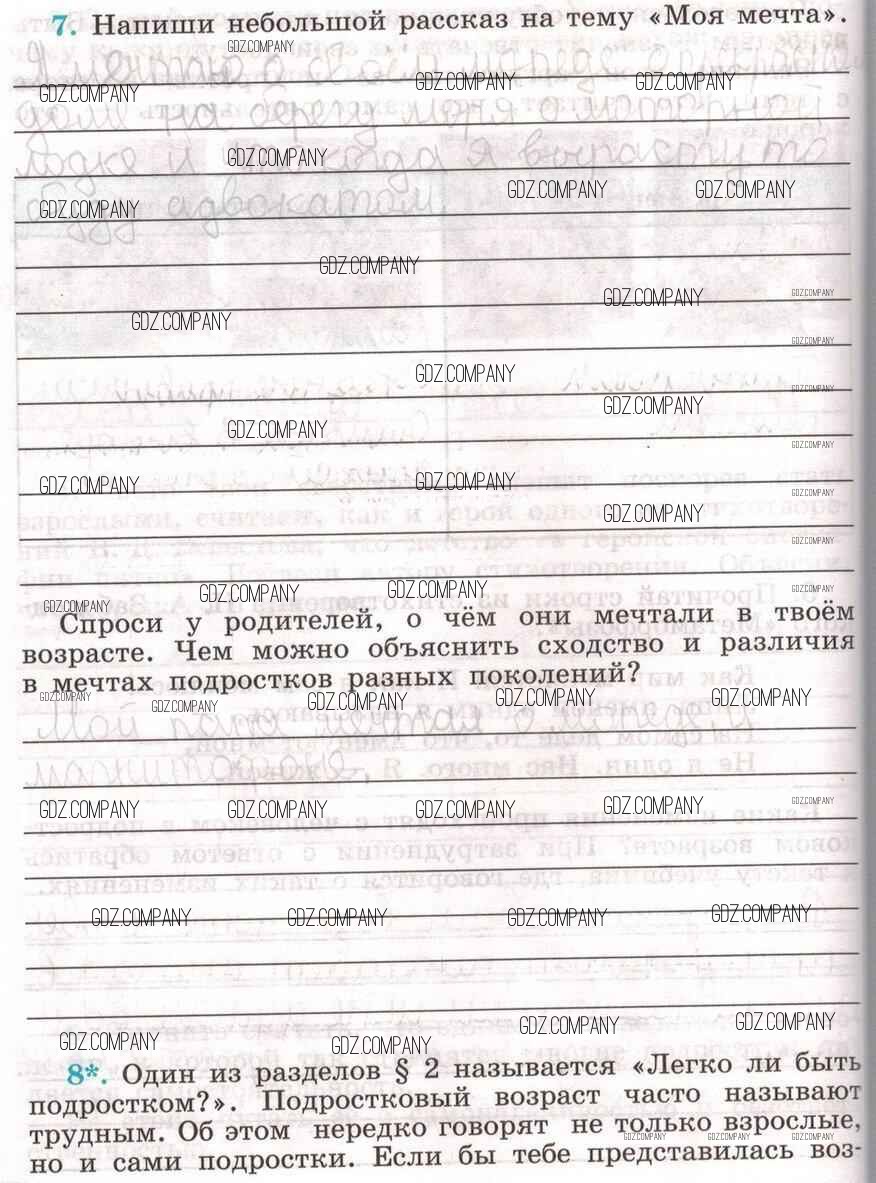 7. Напиши небольшой рассказ на тему «Моя мечта».
Я мечтаю о своём
доме на берегу моря с моторной
лодке и когда я вырасту то
буду адвокатом
Спроси у родителей, о чём они мечтали в твоём
возрасте. Чем можно объяснить сходство и различия
в мечтах подростков разных поколений?
Мой папа мечтал о
8*. Один из разделов § 2 называется «Легко ли быть
подростком?». Подростковый возраст часто называют
трудным. Об этом нередко говорят не только взрослые,
но и сами подростки. Если бы тебе представилась воз-
GDZ.COMPANY